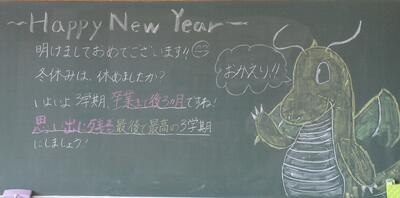 ~Happy New Year~
明けましておめでとうございます!!
冬休みは、休めましたか?
いよいよ3学期、卒業まで後3ヵ月ですね!
思い出に残る最後で最高の3学期
にしましょう!
おかえり!!